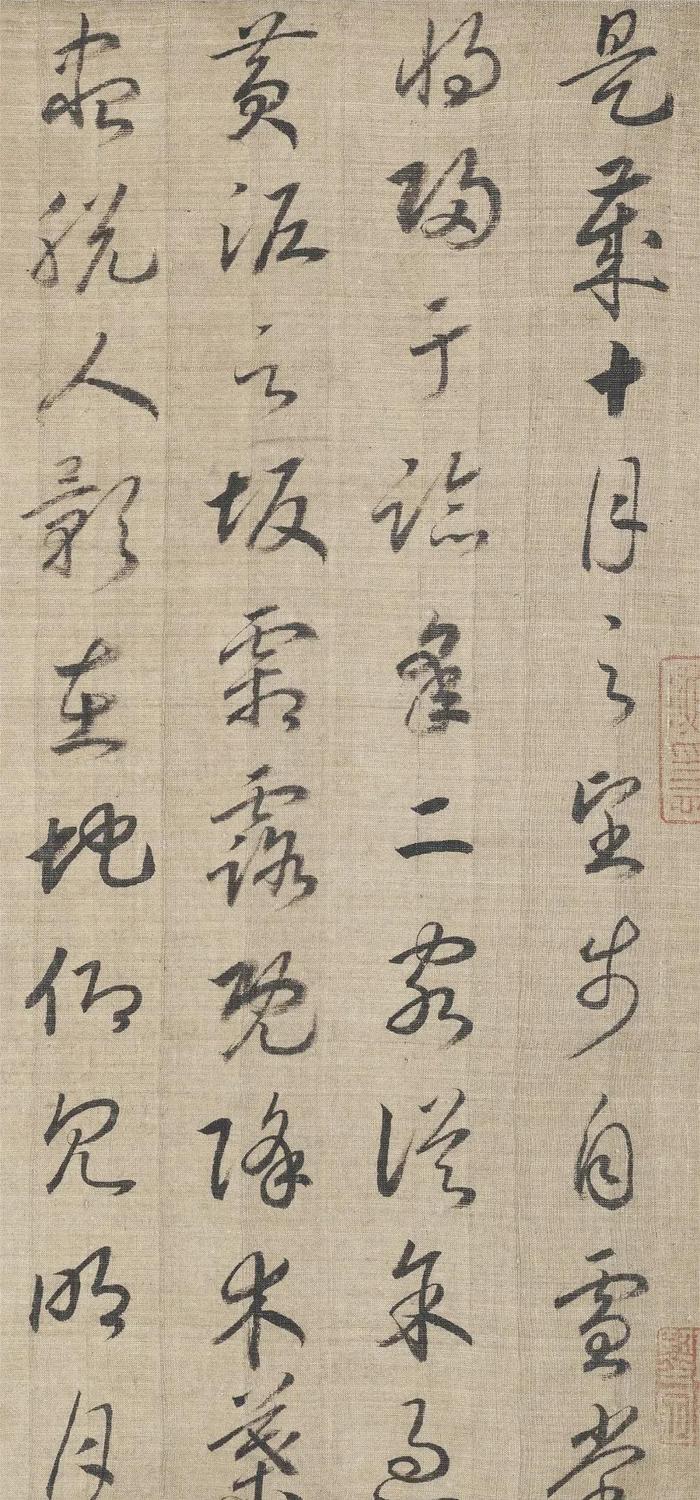 是歲十月之望步自雪堂
將歸于臨皋二客從余過
黃泥之坂霜露既降木葉
盡脫人影在地仰見明月